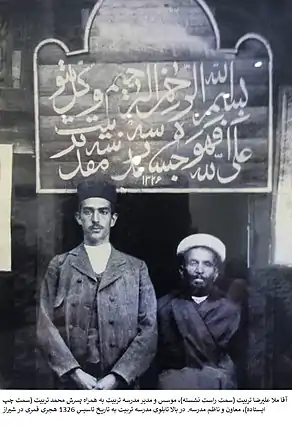 بسم الله الرحمن الرحیم و من یتوکل
علی الله فهو حسبه مدرسه مقدسه تربیت
۱۳۲۶
آقا ملا علیرضا تربیت (سمت راست نشسته)، موسس و مدیر مدرسه تربیت به همراه پسرش محمد تربیت (سمت چپ
ایستاده)، معاون و ناظم مدرسه. در بالا تابلوی مدرسه تربیت به تاریخ تاسیس 1326 هجری قمری در شیراز